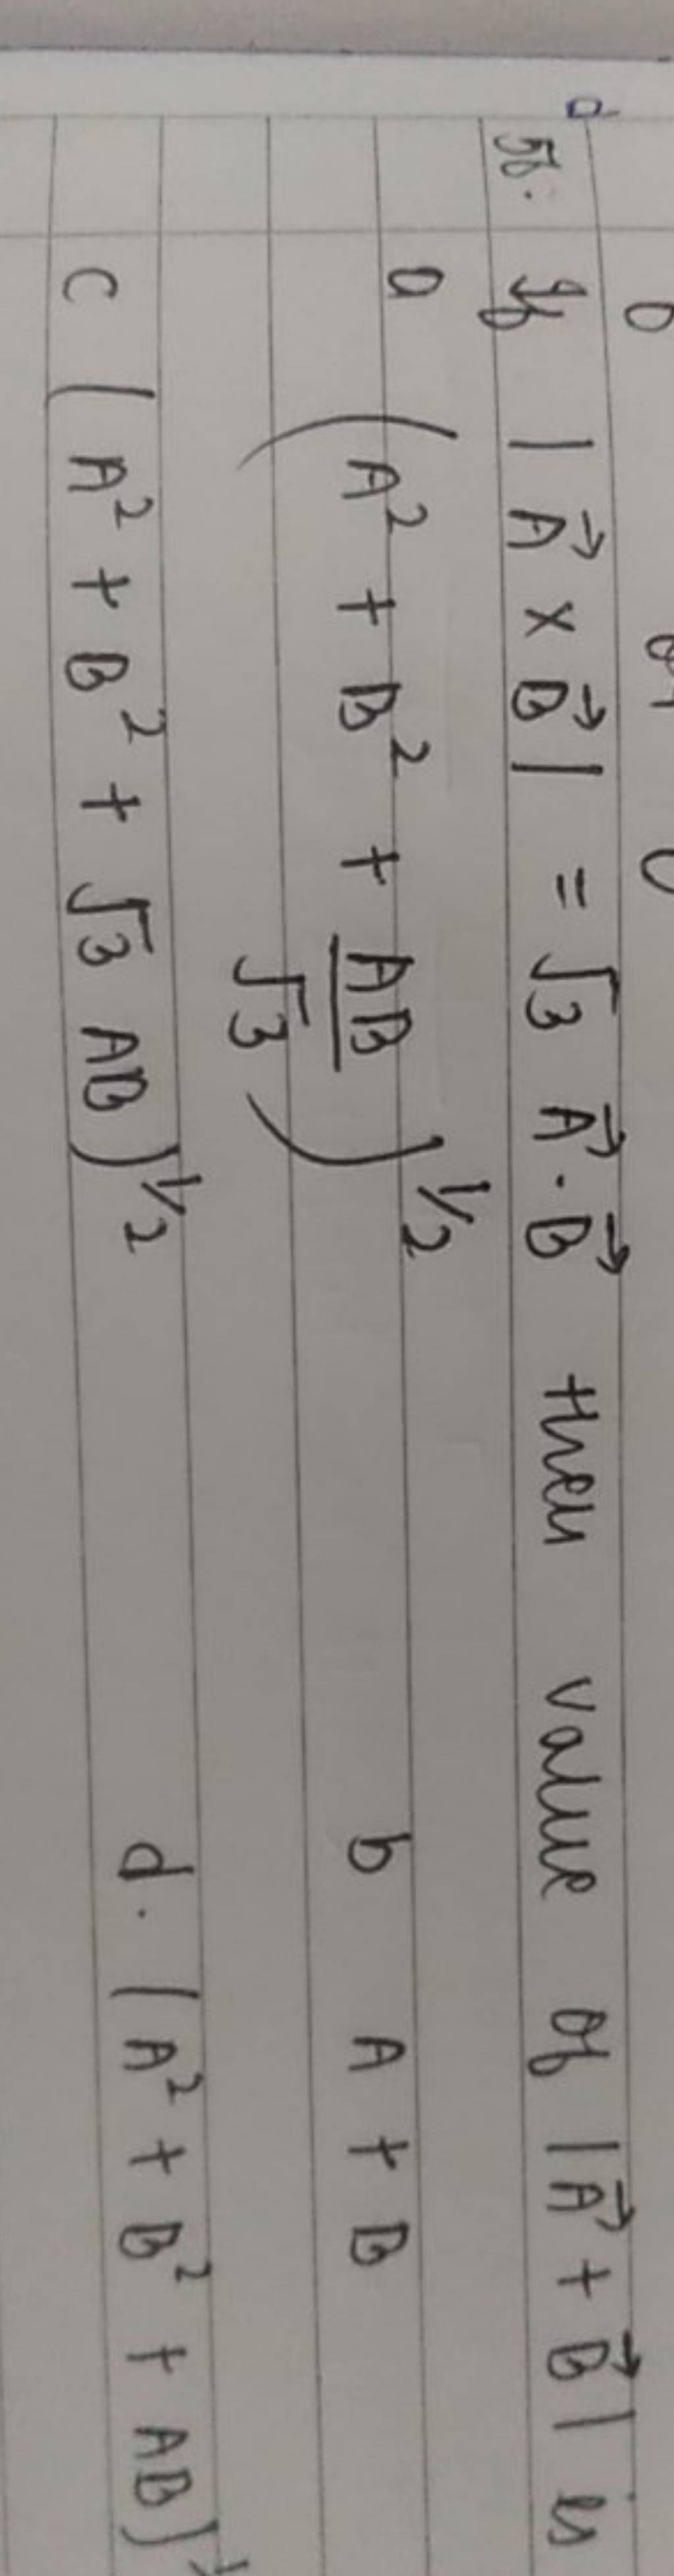 56. If |A⃗ × B⃗| = √3 A⃗ · B⃗ then value of |A⃗ + B⃗| is
a (A² + B² + AB/√3)^1/2 b A + B
c (A² + B² + √3 AB)^1/2 d. (A² + B² + AB)